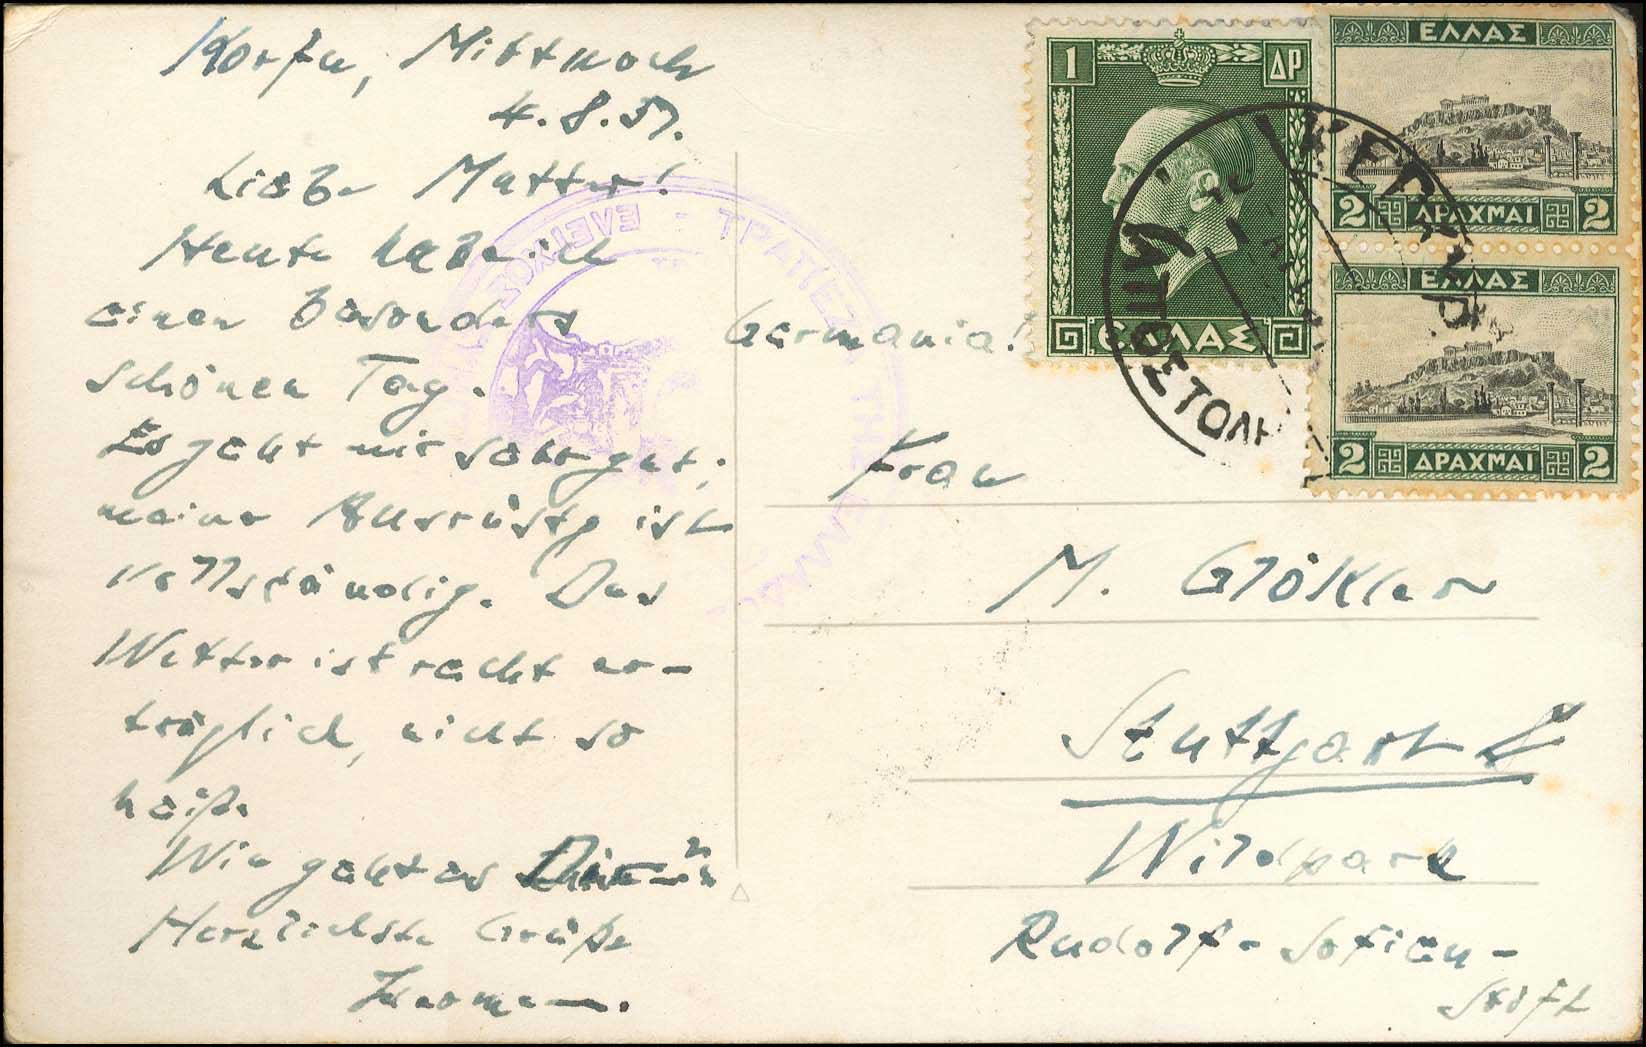 Korfu, Mittwoch
4.8.37.
Liebe Mutter!
Heute habe ich
einen besonders
schönen Tag.
Es geht mir sehr gut;
meine Ausrüstg ist
vollständig. Das
Wetter ist recht er-
träglich, nicht so
heiß.
Wie geht es
Herzlichste Grüße
Germania!
Frau
M. Glökler
Stuttgart
Wildpark
Rudolf-Sofien-
stift
1 ΔΡ
ΕΛΛΑΣ
ΕΛΛΑΣ
2 ΔΡΑΧΜΑΙ 2
ΕΛΛΑΣ
2 ΔΡΑΧΜΑΙ 2
ΚΕΡΚΥΡΑ
ΑΠΟΣΤΟΛΗ
ΤΡΑΠΕΖΑ ΤΗΣ ΕΛΛΑΔΟΣ